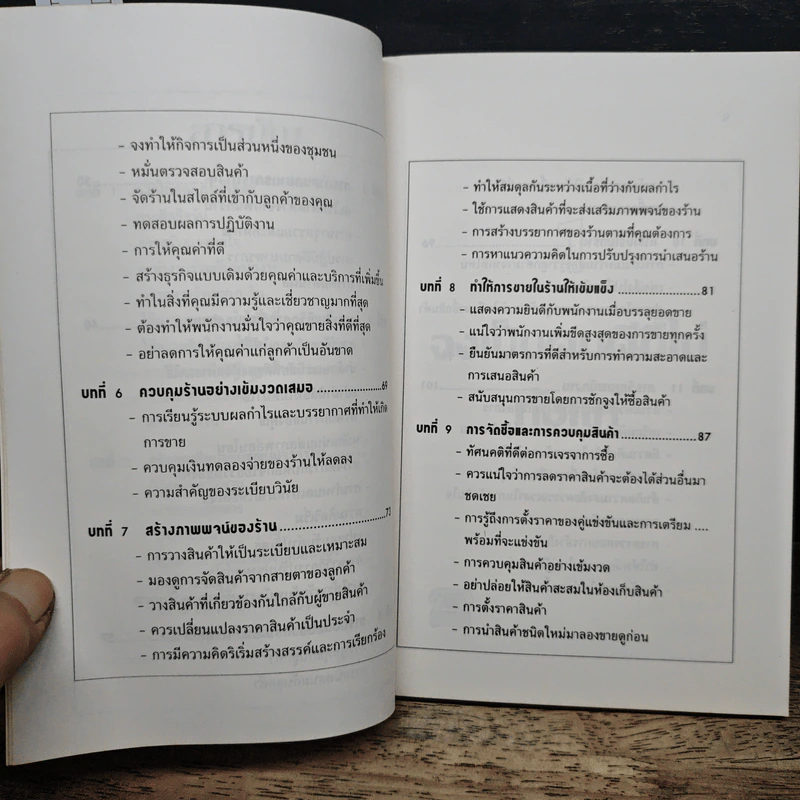 - จงทำให้กิจการเป็นส่วนหนึ่งของชุมชน
- หมั่นตรวจสอบสินค้า
- จัดร้านในสไตล์ที่เข้ากับลูกค้าของคุณ
- ทดสอบผลการปฏิบัติงาน
- การให้คุณค่าที่ดี
- สร้างธุรกิจแบบเดิมด้วยคุณค่าและบริการที่เพิ่มขึ้น
- ทำในสิ่งที่คุณมีความรู้และเชี่ยวชาญมากที่สุด
- ต้องทำให้พนักงานมั่นใจว่าคุณขายสิ่งที่ดีที่สุด
- อย่าลดการให้คุณค่าแก่ลูกค้าเป็นอันขาด
บทที่ 6 ควบคุมร้านอย่างเข้มงวดเสมอ ......................69
- การเรียนรู้ระบบผลกำไรและบรรยากาศที่ทำให้เกิด
การขาย
- ควบคุมเงินทดลองจ่ายของร้านให้ลดลง
- ความสำคัญของระเบียบวินัย
บทที่ 7 สร้างภาพพจน์ของร้าน .............................73
- การวางสินค้าให้เป็นระเบียบและเหมาะสม
- มองดูการจัดสินค้าจากสายตาของลูกค้า
- วางสินค้าที่เกี่ยวข้องกันใกล้กับผู้ขายสินค้า
- ควรเปลี่ยนแปลงราคาสินค้าเป็นประจำ
- การมีความคิดริเริ่มสร้างสรรค์และการเรียกร้อง
- ทำให้สมดุลกันระหว่างเนื้อที่ว่างกับผลกำไร
- ใช้การแสดงสินค้าที่จะส่งเสริมภาพพจน์ของร้าน
- การสร้างบรรยากาศของร้านตามที่คุณต้องการ
- การหาแนวความคิดในการปรับปรุงการนำเสนอร้าน
บทที่ 8 ทำให้การขายในร้านให้เข้มแข็ง ......................81
- แสดงความยินดีกับพนักงานเมื่อบรรลุยอดขาย
- แน่ใจว่าพนักงานเพิ่มขีดสูงสุดของการขายทุกครั้ง
- ยืนยันมาตรการที่ดีสำหรับการทำความสะอาดและ
การเสนอสินค้า
- สนับสนุนการขายโดยการชักจูงให้ซื้อสินค้า
บทที่ 9 การจัดซื้อและการควบคุมสินค้า.....................87
- ทัศนคติที่ดีต่อการเจรจาการซื้อ
- ควรแน่ใจว่าการลดราคาสินค้าจะต้องได้ส่วนอื่นมา
ชดเชย
- การรู้ถึงการตั้งราคาของคู่แข่งขันและการเตรียม ....
พร้อมที่จะแข่งขัน
- การควบคุมสินค้าอย่างเข้มงวด
- อย่าปล่อยให้สินค้าสะสมในห้องเก็บสินค้า
- การตั้งราคาสินค้า
- การนำสินค้าชนิดใหม่มาลองขายดูก่อน